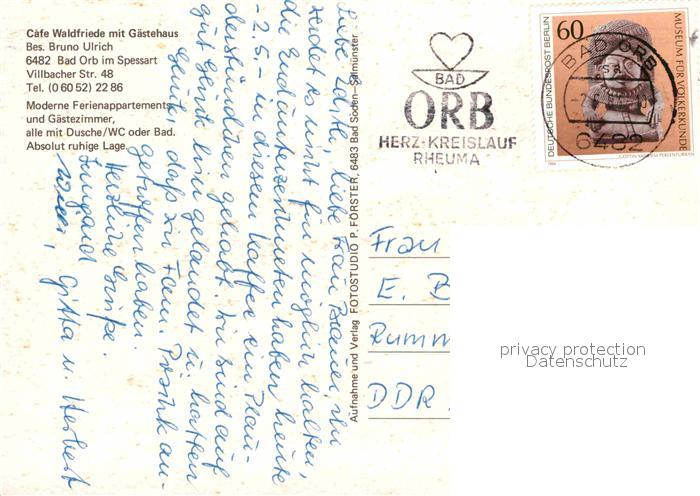 Cafe Waldfriede mit Gästehaus
Bes. Bruno Ulrich
6482 Bad Orb im Spessart
Villbacher Str. 48
Tel. (0 60 52) 22 86
Moderne Ferienappartements
und Gästezimmer,
alle mit Dusche/WC oder Bad.
Absolut ruhige Lage.
Liebe Edith, liebe Frau Brauer, Ihr
werdet es nicht für möglich halten,
die haben heute
- 2.5. - in diesem Kaffee ein Plau-
derstündchen gehabt. Sie sind auf
gut Glück hier gelandet u. hatten
Glück, daß wir
getroffen haben.
Herzliche Grüße.
Irmgard
Gitta u. Herbert
Aufnahme und Verlag FOTOSTUDIO P. FÖRSTER, 6483 Bad Soden-Salmünster
BAD
ORB
HERZ-KREISLAUF
RHEUMA
60
DEUTSCHE BUNDESPOST BERLIN
MUSEUM FÜR VÖLKERKUNDE
BAD ORB
6482
Frau
E. B
Rumm
DDR
privacy protection
Datenschutz